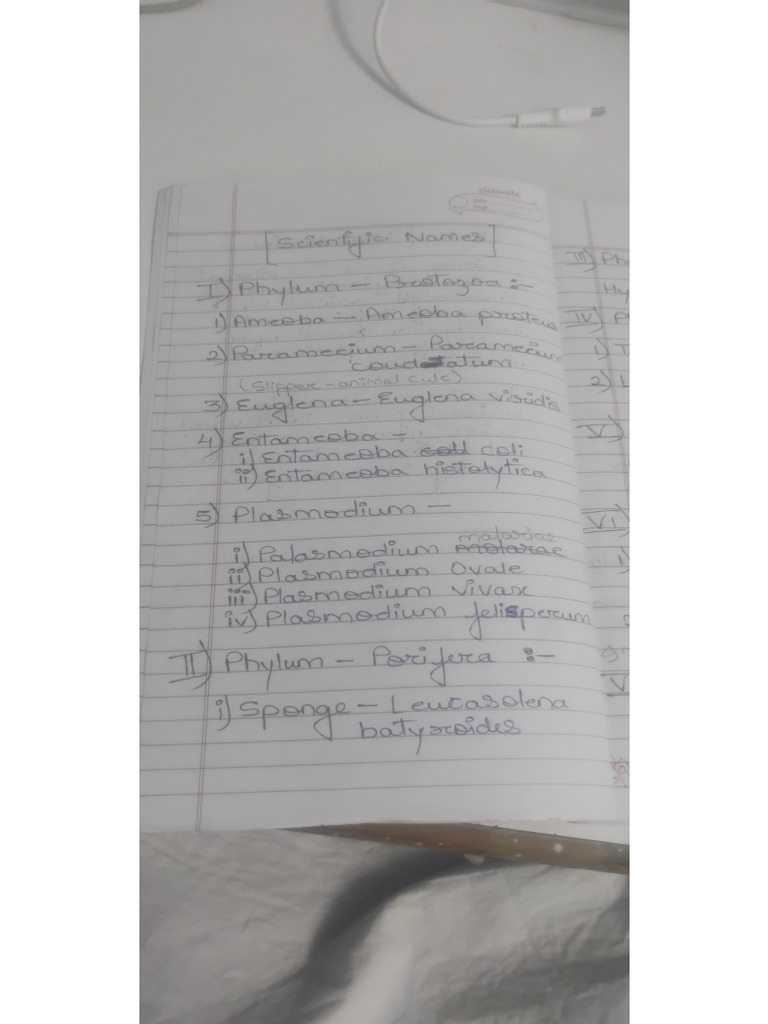 classmate
Date
Page
Scientific Names
I) Phylum - Protozoa :-
1) Ameoba - Ameoba proteus
2) Paramecium - Paramecium
coudatatum.
(Slipper - animal cule)
3) Euglena - Euglena viridis
4) Entameoba -
i) Entameoba coli
ii) Entameoba histolytica
5) Plasmodium -
malariae
i) Palasmodium
ii) Plasmodium Ovale
iii) Plasmodium vivax
iv) Plasmodium felisperum
II) Phylum - Porifera :-
i) Sponge - Leucasolena
batyroides
III) Ph
Hy
IV) P
1) T
2) L
V)
VI)
1)
V